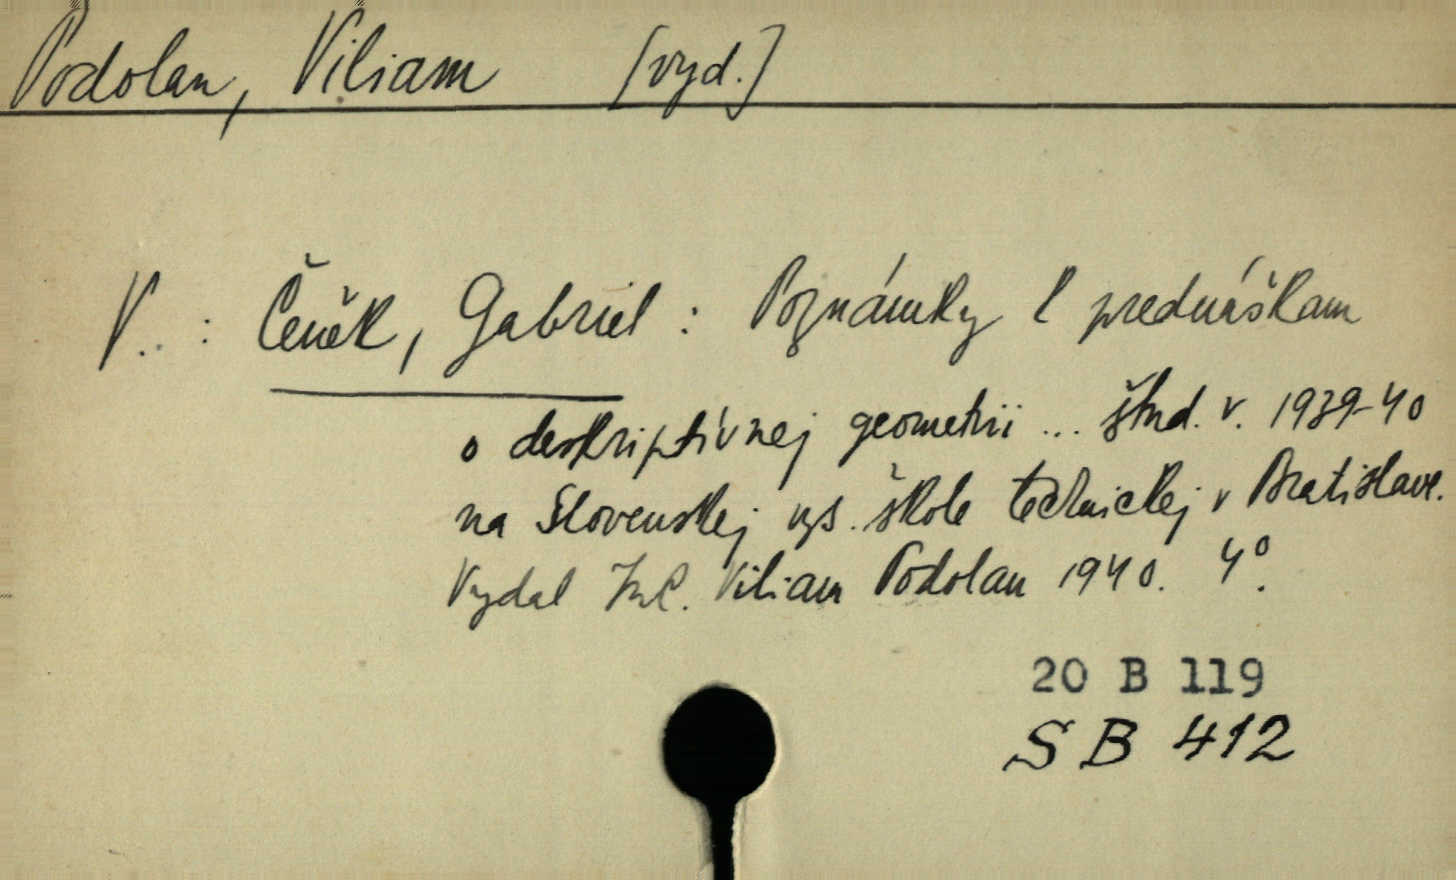 Podolan, Viliam [vyd.]
V.. : Čeněk, Gabriel : Poznámky k prednáškam
o deskriptívnej geometrii ... štud. r. 1939-40
na Slovenskej vys. škole technickej v Bratislave.
Vydal Viliam Podolan 1940. 4°.
20 B 119
SB 412